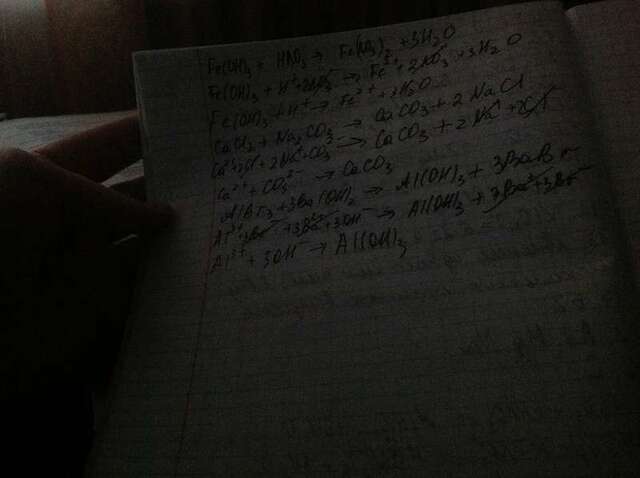 Fe(OH)₃ + HNO₃ → Fe(NO₃)₂ + 3H₂O
Fe(OH)₃ + H⁺ + 2NO₃⁻ → Fe²⁺ + 2NO₃⁻ + 3H₂O
Fe(OH)₃ + H⁺ → Fe²⁺ + 3H₂O
CaCl₂ + Na₂CO₃ → CaCO₃ + 2NaCl
Ca²⁺ + 2Cl⁻ + 2Na⁺ + CO₃²⁻ → CaCO₃ + 2Na⁺ + 2Cl⁻
Ca²⁺ + CO₃²⁻ → CaCO₃
AlBr₃ + 3Ba(OH)₂ → Al(OH)₃ + 3BaBr
Al³⁺ + 3Br⁻ + 3Ba²⁺ + 3OH⁻ → Al(OH)₃ + 3Ba²⁺ + 3Br⁻
Al³⁺ + 3OH⁻ → Al(OH)₃